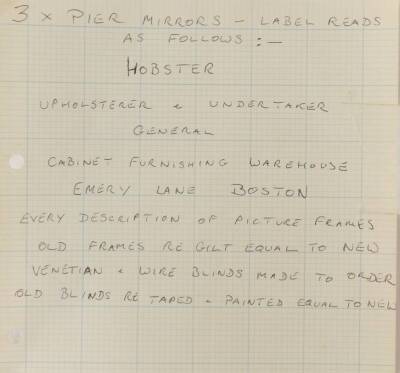 3 x PIER MIRRORS - LABEL READS
AS FOLLOWS :-
HOBSTER
UPHOLSTERER & UNDERTAKER
GENERAL
CABINET FURNISHING WAREHOUSE
EMERY LANE BOSTON
EVERY DESCRIPTION OF PICTURE FRAMES
OLD FRAMES RE GILT EQUAL TO NEW
VENETIAN & WIRE BLINDS MADE TO ORDER
OLD BLINDS RE TAPED & PAINTED EQUAL TO NEW